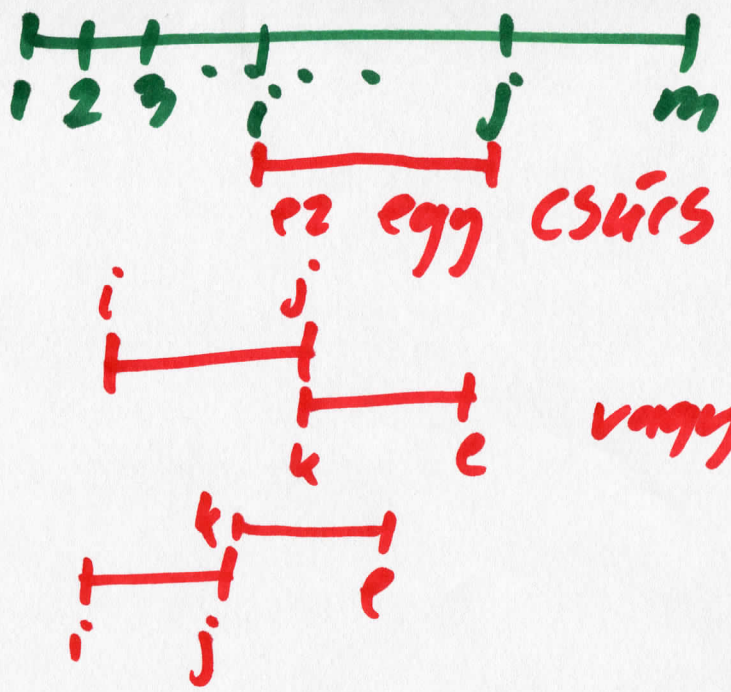 1 2 3 . . . . i j m
ez egy csúcs
i j
k l
vagy
k l
i j